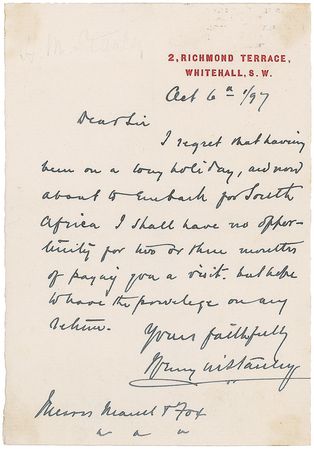 2, RICHMOND TERRACE,
WHITEHALL, S.W.
Oct 6th /97
Dear Sir
I regret that having
been on a long holiday, and now
about to Embark for South
Africa I shall have no oppor-
tunity for two or three months
of paying you a visit. but hope
to have the privilege on my
return.
Yours faithfully
Henry M Stanley
Messrs Maull & Fox